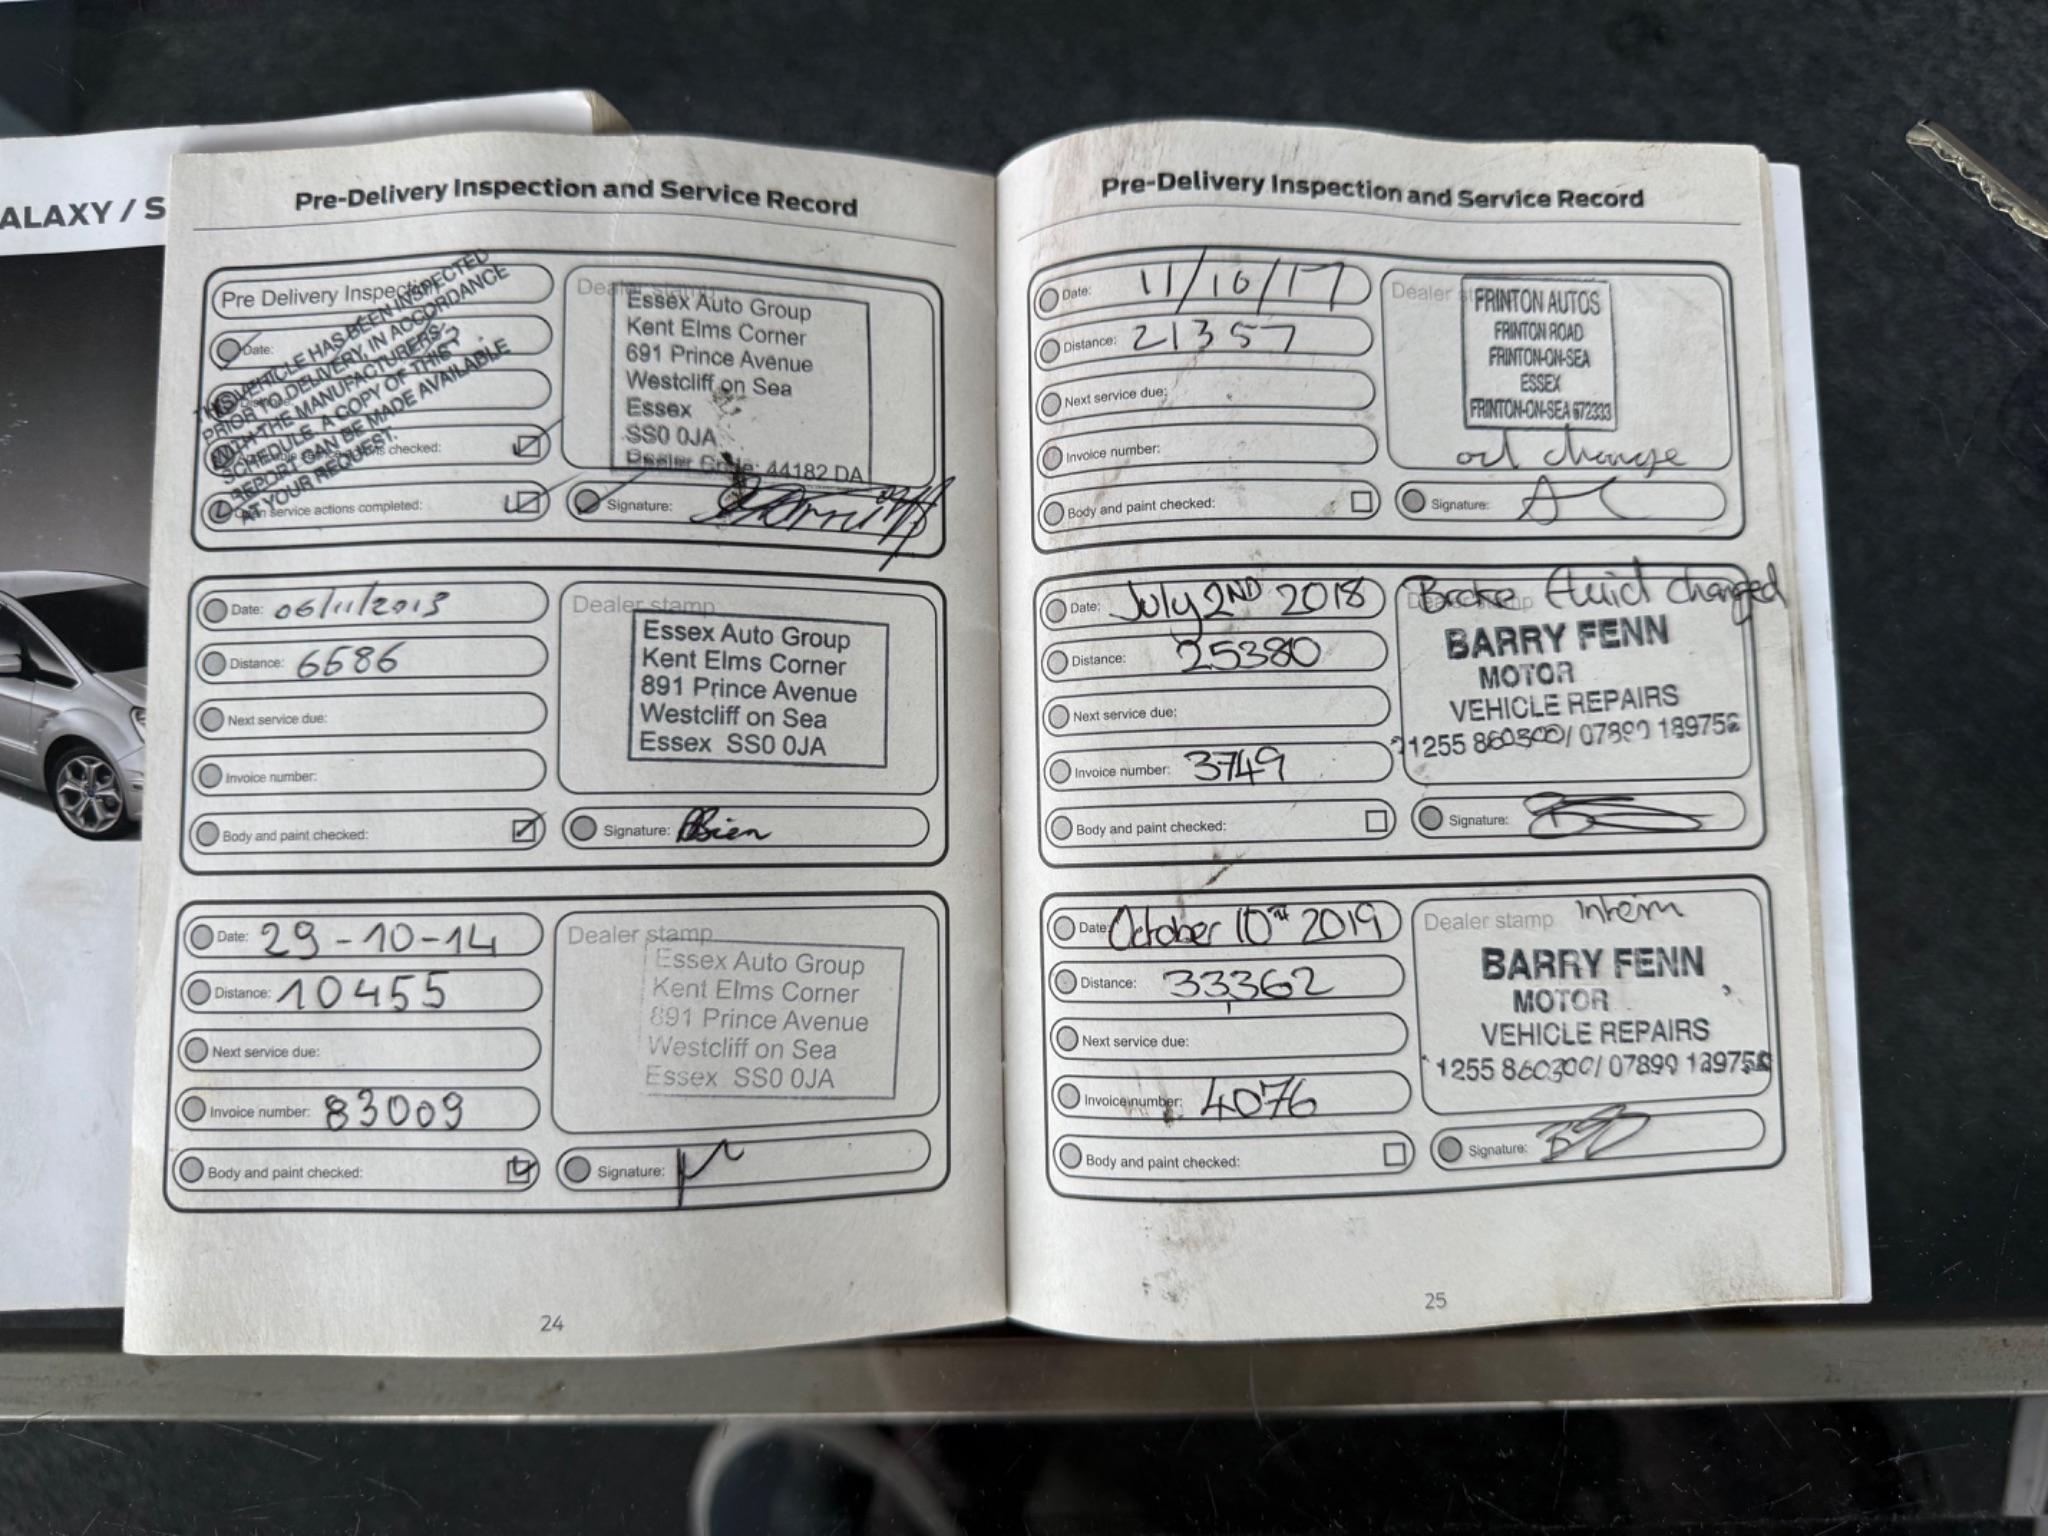 ALAXY / S
Pre-Delivery Inspection and Service Record
Pre Delivery Inspection
Date:
THIS VEHICLE HAS BEEN INSPECTED
PRIOR TO DELIVERY, IN ACCORDANCE
WITH THE MANUFACTURERS
SCHEDULE. A COPY OF THIS
REPORT CAN BE MADE AVAILABLE
AT YOUR REQUEST.
checked:
service actions completed:
Dealer stamp
Essex Auto Group
Kent Elms Corner
691 Prince Avenue
Westcliff on Sea
Essex
SS0 0JA
Dealer Code: 44182 DA
Signature:
Date: 06/11/2013
Distance: 6586
Next service due:
Invoice number:
Body and paint checked:
Dealer stamp
Essex Auto Group
Kent Elms Corner
891 Prince Avenue
Westcliff on Sea
Essex SS0 0JA
Signature:
Date: 29-10-14
Distance: 10455
Next service due:
Invoice number: 83009
Body and paint checked:
Dealer stamp
Essex Auto Group
Kent Elms Corner
891 Prince Avenue
Westcliff on Sea
Essex SS0 0JA
Signature:
24
Pre-Delivery Inspection and Service Record
Date: 11/10/17
Distance: 21357
Next service due:
Invoice number:
Body and paint checked:
Dealer
FRINTON AUTOS
FRINTON ROAD
FRINTON-ON-SEA
ESSEX
FRINTON-ON-SEA 672333
oil change
Signature:
Date: July 2ND 2018
Distance: 25380
Next service due:
Invoice number: 3749
Body and paint checked:
Brake fluid changed
Dealer stamp
BARRY FENN
MOTOR
VEHICLE REPAIRS
1255 860300/ 07899 189758
Signature:
Date: October 10TH 2019
Distance: 33362
Next service due:
Invoice number: 4076
Body and paint checked:
Dealer stamp Interim
BARRY FENN
MOTOR
VEHICLE REPAIRS
1255 860300/ 07899 189758
Signature:
25